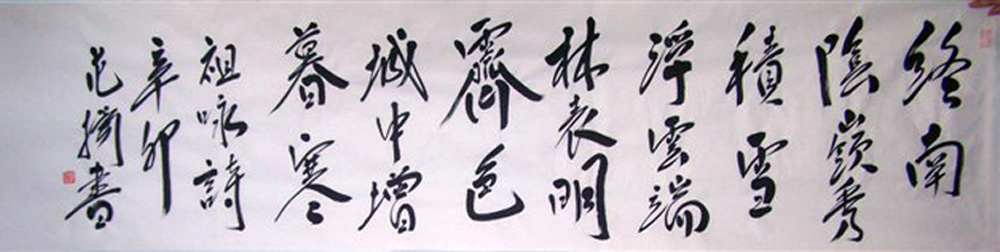 終南
陰嶺秀
積雪
浮雲端
林表明
霽色
城中增
暮寒
祖咏詩
辛卯
書